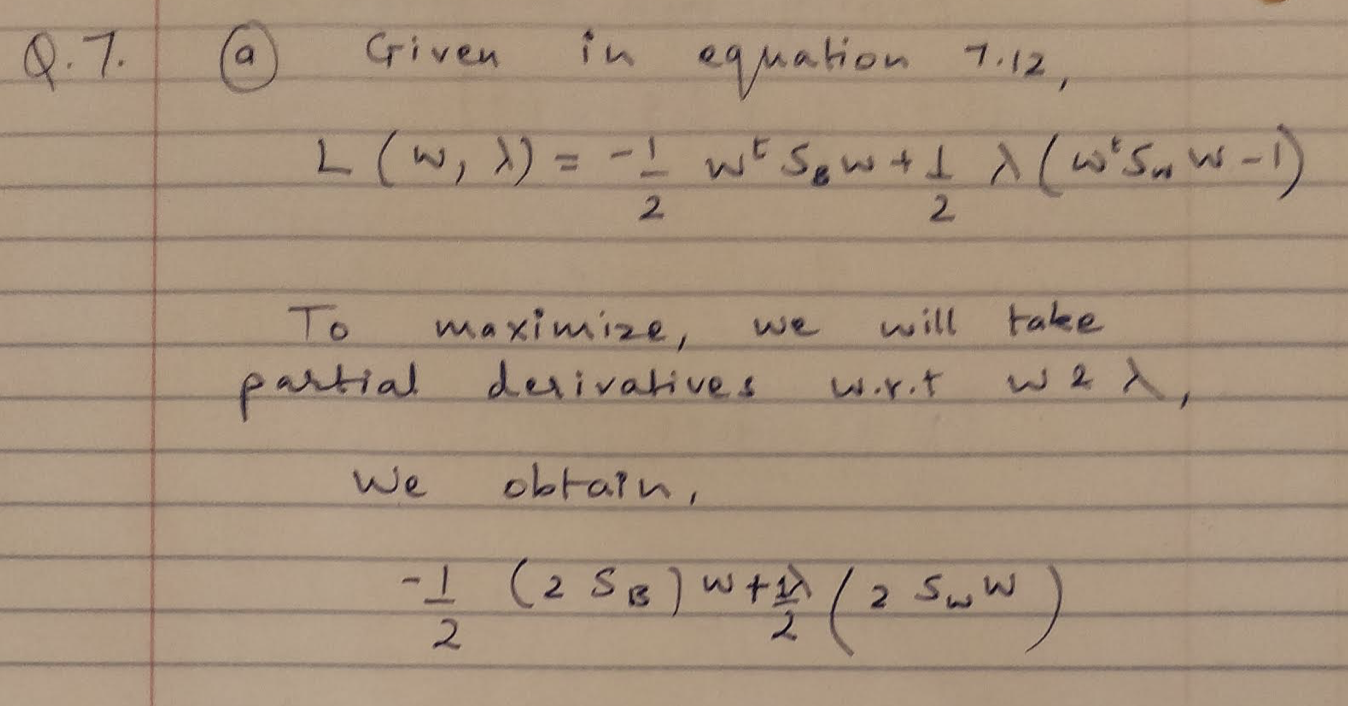 Q.7. (a) Given in equation 7.12,
L (w, λ) = -1/2 wᵗ S_B w + 1/2 λ (wᵗ S_w w - 1)
To maximize, we will take
partial derivatives w.r.t w & λ,
We obtain,
-1/2 (2 S_B) w + 1λ/2 (2 S_w w)